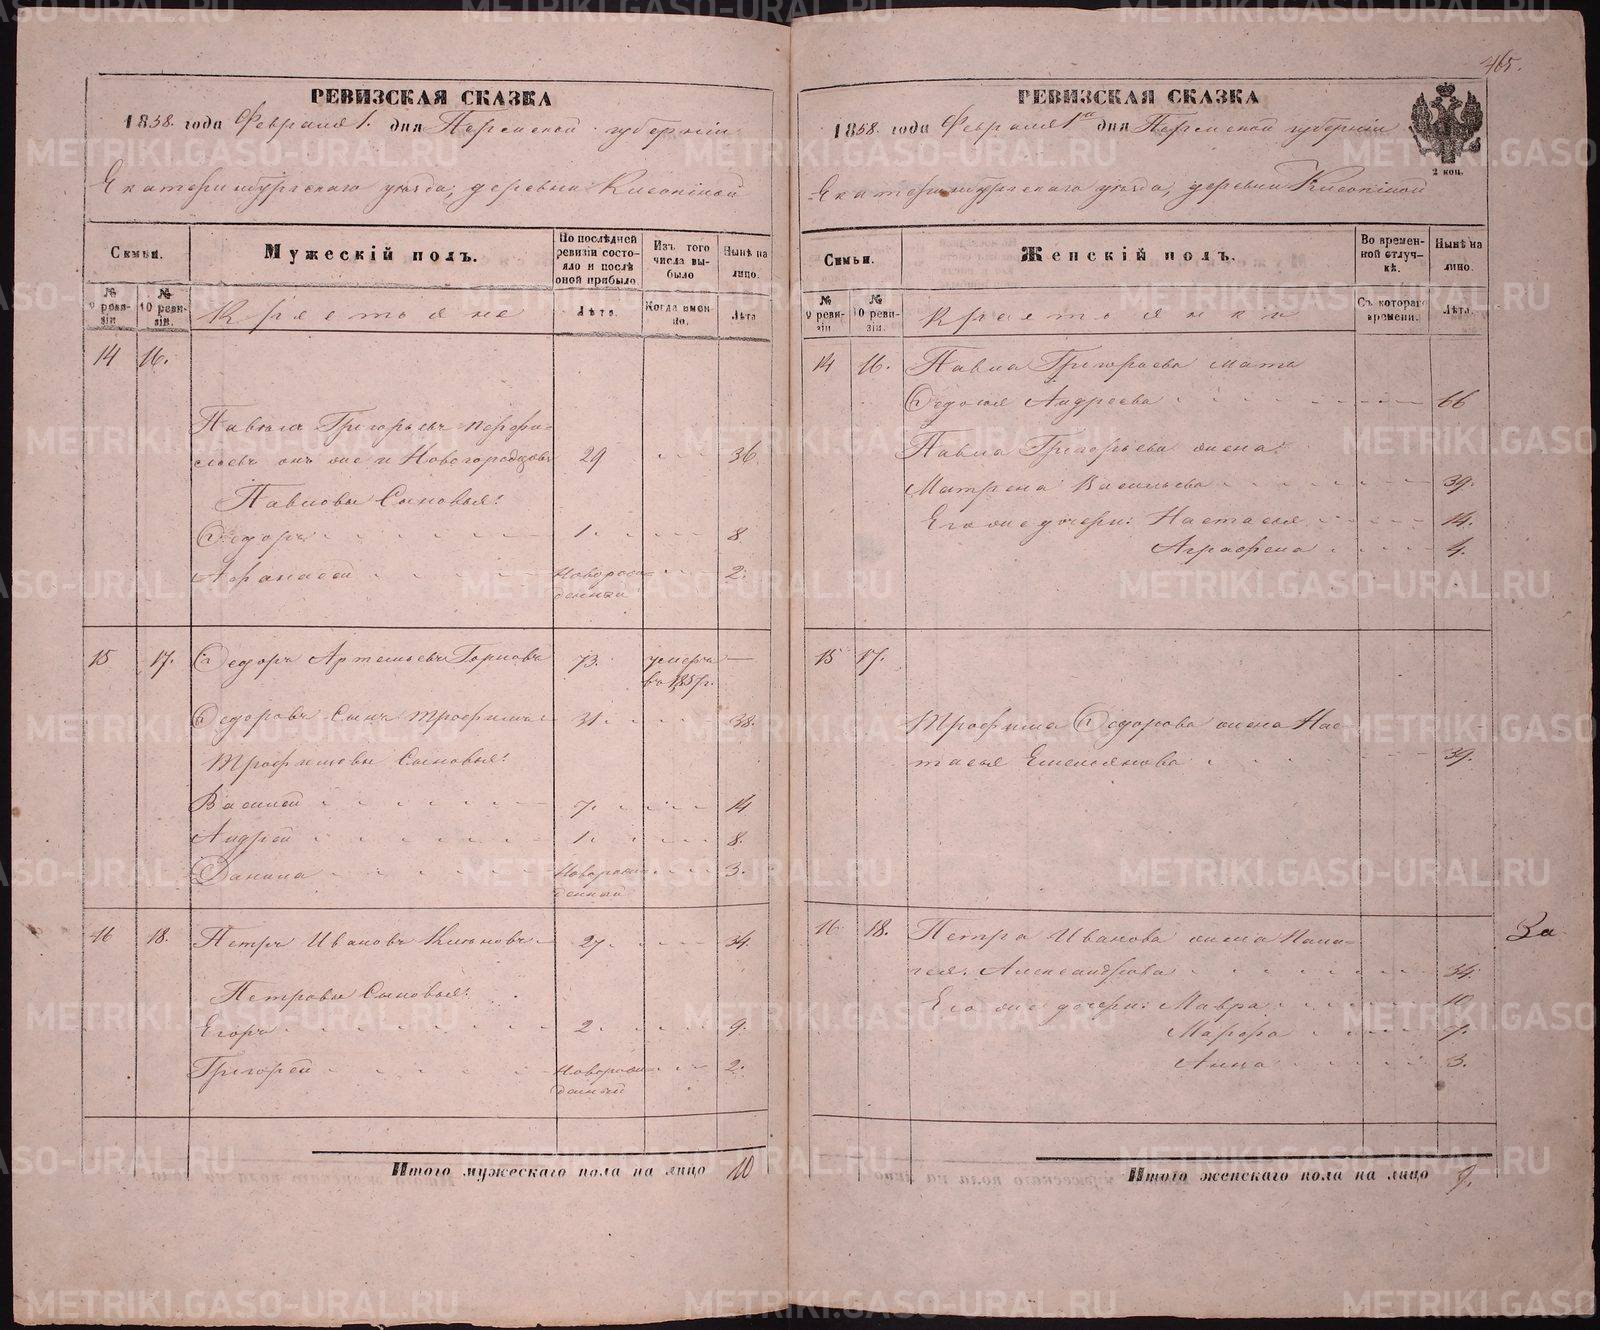 465.
РЕВИЗСКАЯ СКАЗКА
1858. года Февраля 1. дня Пермской губерніи
Екатеринбургскаго уѣзда, деревни
Семьи.
Мужескій полъ.
По послѣдней ревизіи состояло и послѣ оной прибыло.
Изъ того числа выбыло
Нынѣ на лицо.
№ 9 ревизіи
№ 10 ревизіи.
Крестьяне
Лѣта.
Когда именно.
Лѣта
14 16.
Павелъ Григорьевъ
онъ же и Новогородцовъ 29 36.
Павловы Сыновья:
Ѳедоръ 1. 8
Афанасей Новорож- 2.
денный
15 17. Ѳедоръ Артемьевъ 73. умеръ
въ 1857 г.
Ѳедоровъ Сынъ Трофимъ 31. 38.
Трофимовы Сыновья:
Василей 7. 14
Андрей 1. 8.
Данила Новорож- 3.
денный
16 18. Петръ Ивановъ 27. 34.
Петровы Сыновья:
Егоръ 2. 9.
Григорей Новорож- 2.
денный
Итого мужескаго пола на лицо 10
РЕВИЗСКАЯ СКАЗКА
1858. года Февраля 1го дня Пермской губерніи
Екатеринбургскаго уѣзда, деревни
2 коп.
Семьи.
Женскій полъ.
Во временной отлучкѣ.
Нынѣ на лицо.
№ 9 ревизіи
№ 10 ревизіи.
Крестьянки
Съ котораго времени.
Лѣта.
14 16. Павла Григорьева мать
Ѳедосья Андреева 66
Павла Григорьева жена:
Матрена Васильева 39.
Его же дочери: Настасья 14.
Аграфена 4.
15 17.
Трофима Ѳедорова жена Нас-
тасья Емельянова 39.
16 18. Петра Иванова жена Пала-
гея Александрова 34.
Его же дочери: Мавра 10
Марфа 7.
Анна 3.
За
Итого женскаго пола на лицо 9.
METRIKI.GASO-URAL.RU